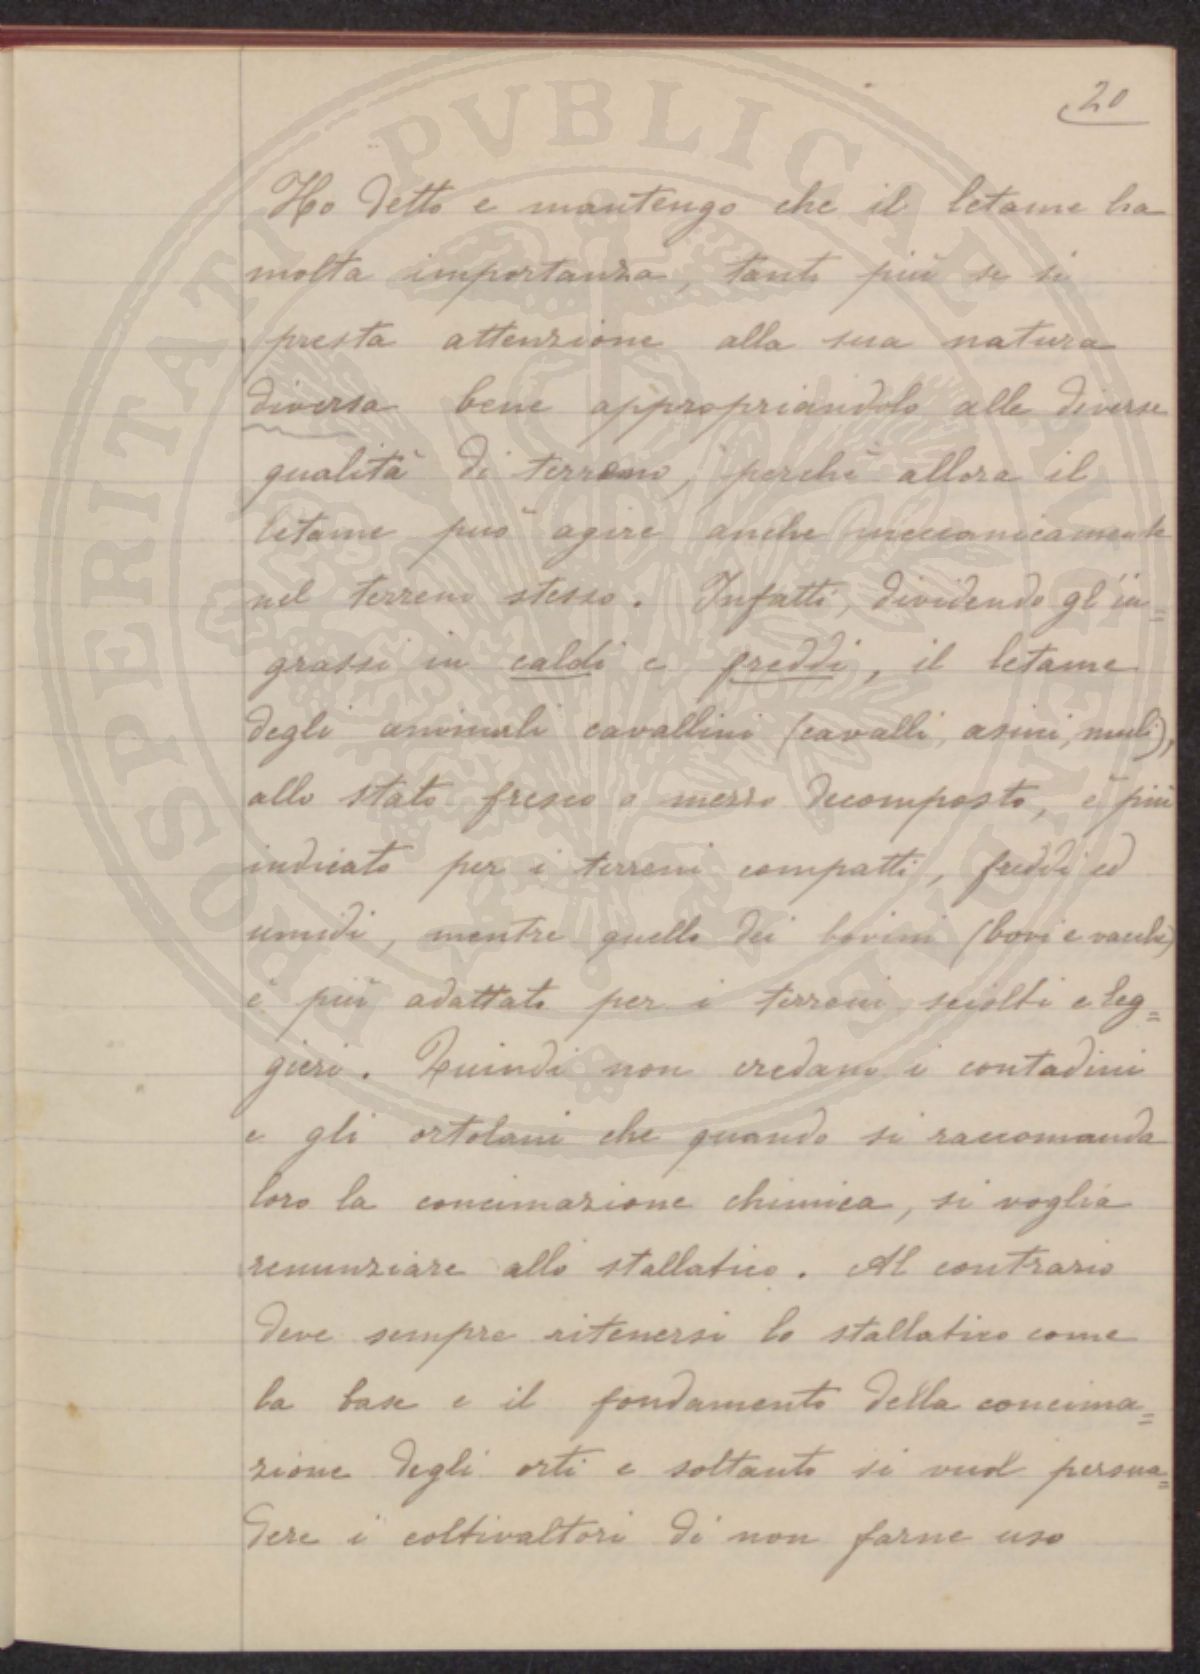 20
Ho detto e mantengo che il letame ha
molta importanza, tanto più se si
presta attenzione alla sua natura
diversa bene appropriandolo alle diverse
qualità di terreno, perchè allora il
letame può agire anche meccanicamente
nel terreno stesso. Infatti, dividendo gl'in=
grassi in caldi e freddi, il letame
degli animali cavallini (cavalli, asini, muli),
allo stato fresco o mezzo decomposto, è più
indicato per i terreni compatti, freddi ed
umidi, mentre quello dei bovini (bovi e vacche)
è più adattato per i terreni sciolti e leg=
gieri. Quindi non credano i contadini
e gli ortolani che quando si raccomanda
loro la concimazione chimica, si voglia
renunziare allo stallatico. Al contrario
deve sempre ritenersi lo stallatico come
la base e il fondamento della concima=
zione degli orti e soltanto si vuol persua=
dere i coltivaltori di non farne uso
PROSPERITATI PVBLICAE AVGENDAE